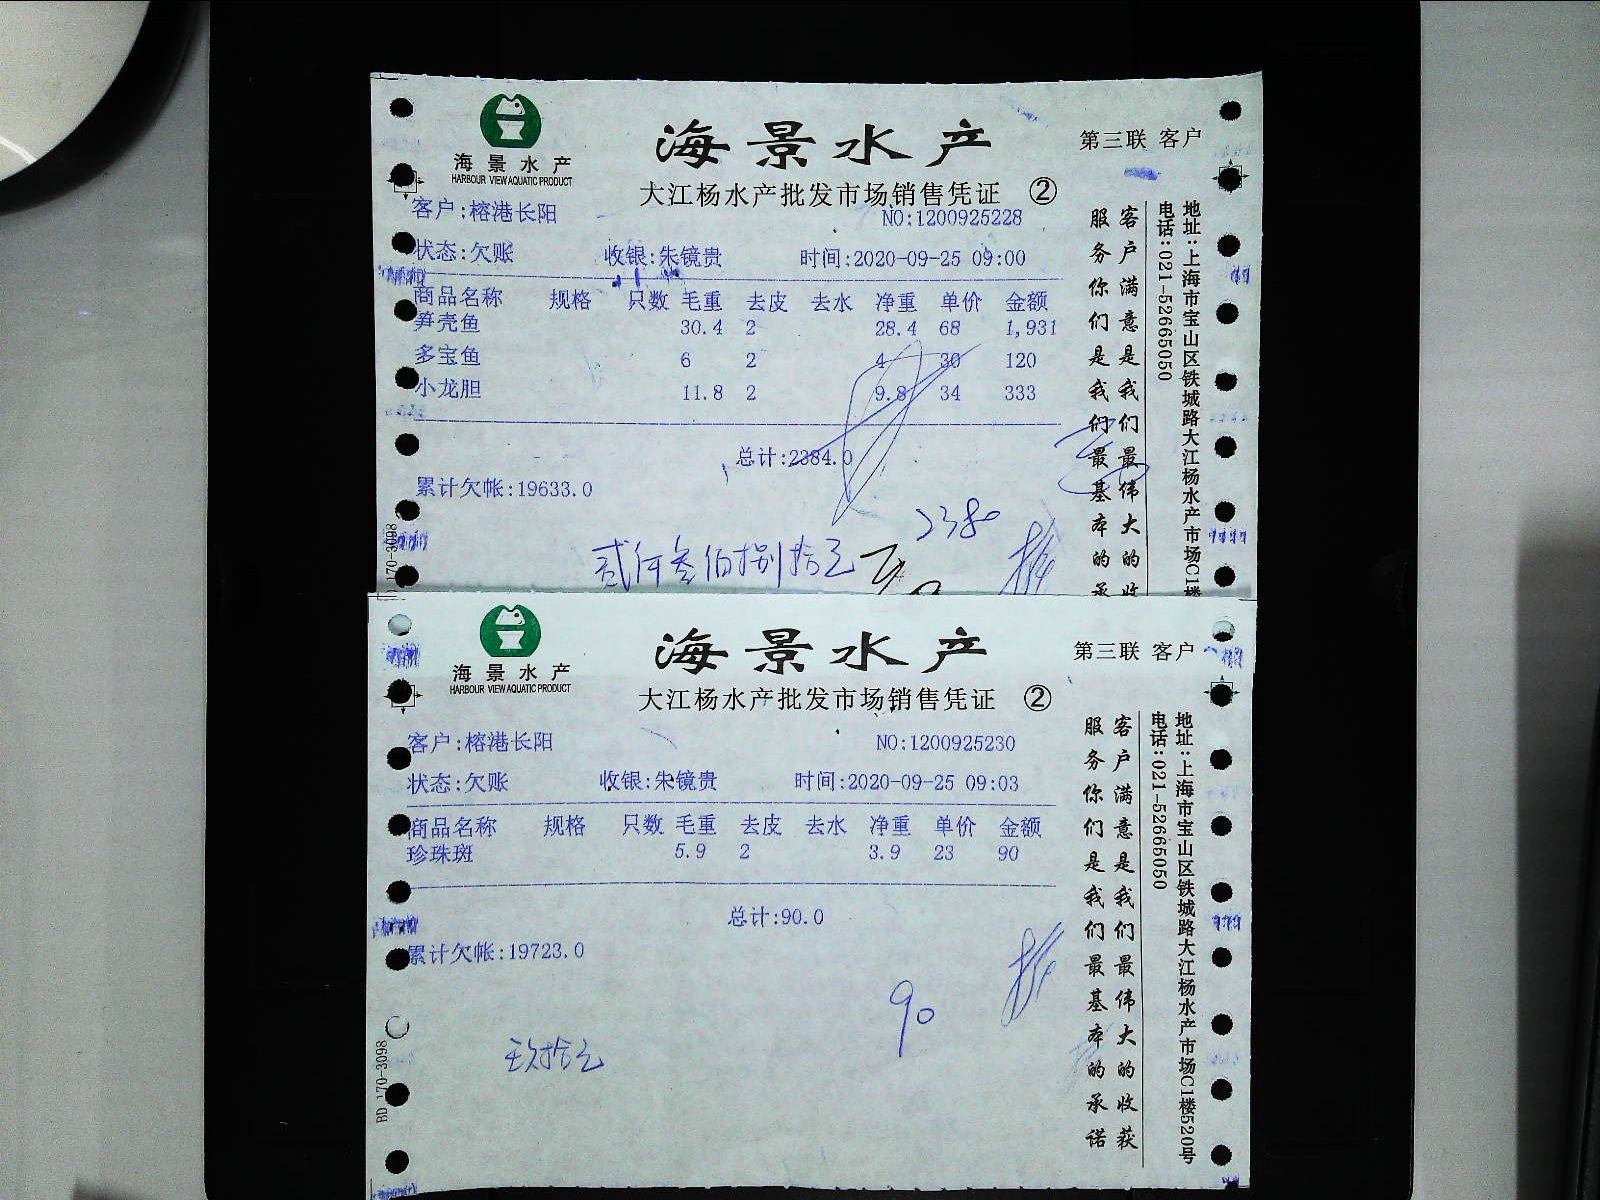 海景水产
HARBOUR VIEW AQUATIC PRODUCT
海景水产
第三联 客户
大江杨水产批发市场销售凭证 ②
客户:榕港长阳 NO:1200925228
状态:欠账 收银:朱镜贵 时间:2020-09-25 09:00
商品名称 规格 只数 毛重 去皮 去水 净重 单价 金额
笋壳鱼 30.4 2 28.4 68 1,931
多宝鱼 6 2 4 30 120
小龙胆 11.8 2 9.8 34 333
总计:2384.0
累计欠帐:19633.0
2380
贰仟叁佰捌拾元
客户满意是我们最伟大的收
服务你们是我们最基本的承
地址:上海市宝山区铁城路大江杨水产市场C1楼
电话:021-52665050
170-3098
海景水产
HARBOUR VIEW AQUATIC PRODUCT
海景水产
第三联 客户
大江杨水产批发市场销售凭证 ②
客户:榕港长阳 NO:1200925230
状态:欠账 收银:朱镜贵 时间:2020-09-25 09:03
商品名称 规格 只数 毛重 去皮 去水 净重 单价 金额
珍珠斑 5.9 2 3.9 23 90
总计:90.0
累计欠帐:19723.0
90
玖拾元
客户满意是我们最伟大的收获
服务你们是我们最基本的承诺
地址:上海市宝山区铁城路大江杨水产市场C1楼520号
电话:021-52665050
BD 170-3098